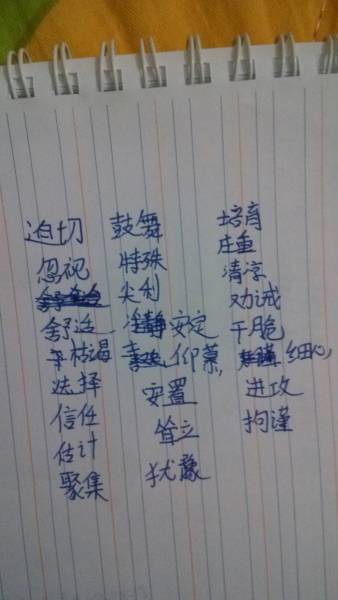 迫切
忽视
舒适
枯竭
选择
信任
估计
聚集
鼓舞
特殊
尖利
安定
仰慕,
安置
耸立
犹豫
培育
庄重
清凉
劝诫
干脆
细心,
进攻
拘谨